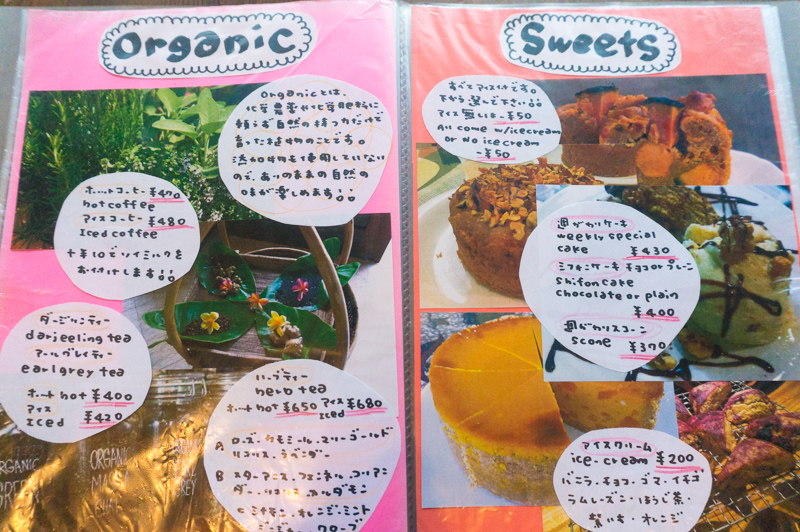 Organic
Organicとは、
化学農薬や化学肥料に
頼らず自然の持つ力だけで
育った植物のことです。
添加物も使用していない
ので、ありのままの自然の
味が楽しめます!!
ホットコーヒー ¥470
hot coffee
アイスコーヒー ¥480
Iced coffee
+¥10でソイミルクを
お付けします!!
ダージリンティー
darjeeling tea
アールグレイティー
earl grey tea
ホット hot ¥400
アイス
Iced ¥420
ハーブティー
herb tea
ホット hot ¥650 アイス Iced ¥680
A ローズ・ケモミール・マリーゴールド
リコリス・ラベンダー
B スターアニス・フェンネル・コリアン
ダー・リコリス・カルダモン
オレンジ・ミント
クローブ
ORGANIC
GREEN
ORGANIC
GREY
Sweets
すべてアイス付です。
下から選んで下さい!!
アイス無しは-¥50
All come w/icecream
or No ice cream
-¥50
週がわりケーキ
weekly special
cake ¥430
シフォンケーキ チョコorプレーン
shifon cake
chocolate or plain
¥400
週がわりスコーン
scone ¥370
アイスクリーム
ice-cream ¥200
バニラ・チョコ・ゴマ・イチゴ
ラムレーズン・ほうじ茶・
紫いも・オレンジ